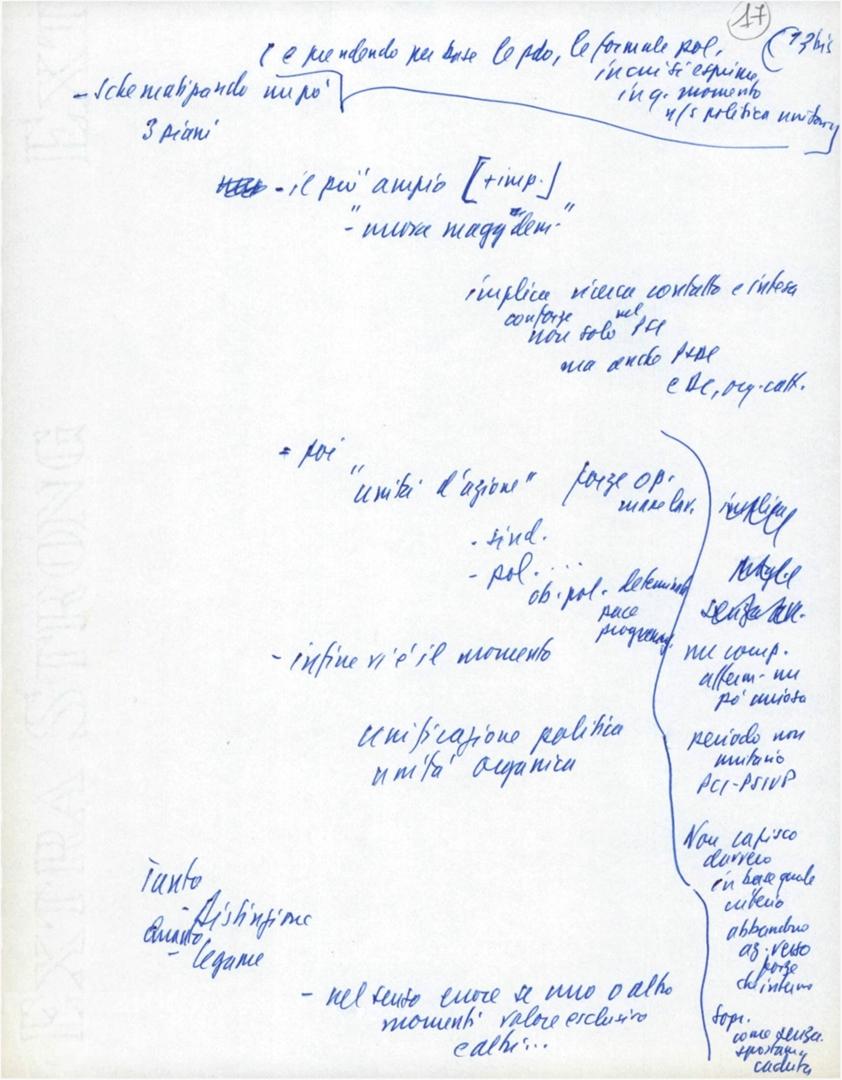 17
(13bis
( e prendendo per base le pdo, le formule pol.
in cui si esprime
in q. momento
n/s politica unitaria
- Schematizzando un po'
3 piani
- il più ampio [+imp.]
- "nuova magg. dem."
implica ricerca contatto e intesa
con forze nel
non solo PSI
ma anche PSDI
e DC, org. catt.
= poi
"unità d'azione" forze op.
masse lav.
- sind.
- pol. ....
ob. pol. determinati
pace
programmi
- infine vi è il momento
unificazione politica
unità organica
Tanto
- Distinzione
Quanto
- legame
- nel senso errore se uno o altro
momenti valore esclusivo
e altri...
implica
senza
un comp.
afferm. un
po' curiosa
periodo non
unitario
PCI-PSIUP
Non capisco
davvero
in base quale
criterio
abbandono
az. verso
forze
che intern
Sopr.
come senza
spostam.
caduta
EXTRA STRONG
EXT